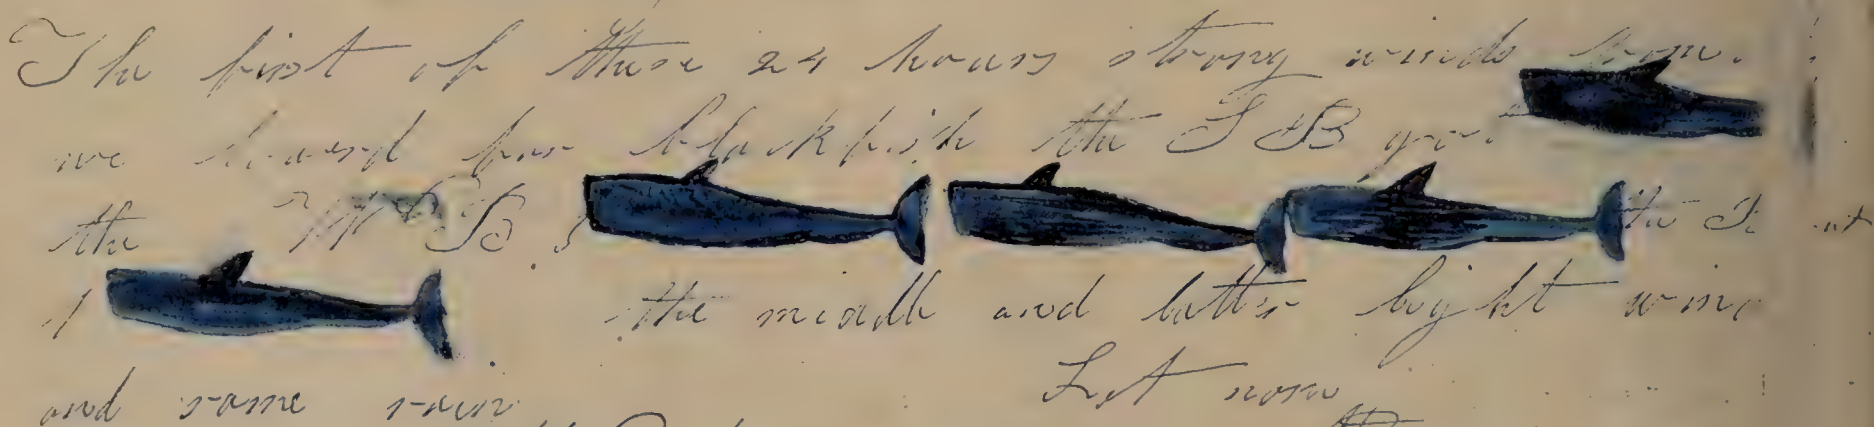 The first of these 24 hours strong winds from
we lowerd for blackfish the S B got
the W B 3 the
1 the middle and latter light wind
and some rain Lat nom